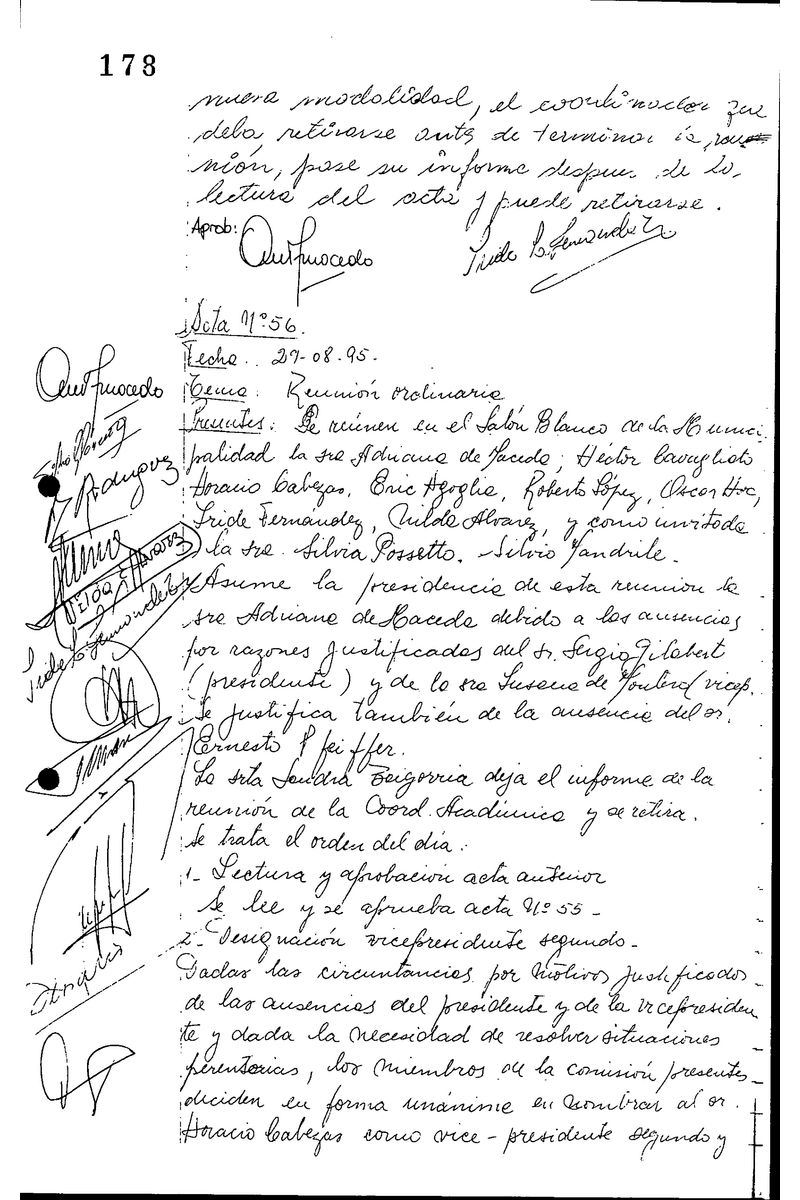 178
nueva modalidad, el coordinador que
deba retirarse antes de terminar la reu-
nión, pase su informe despues de la
lectura del acta y puede retirarse.
Aprob:
Iride B. Fernandez
Acta Nº 56.
Fecha.. 29-08.95.
Tema: Reunión ordinaria
Presentes: Se reúnen en el Salón Blanco de la Munici
palidad la sra Adriana de Maceda, Héctor Cavugliato
Horacio Cabezas, Eric Agoglia, Roberto López, Oscar
Iride Fernandez, Nilda Alvarez, y como invitada
la sra. Silvia Possetto. Silvio Yandrile.
Asume la presidencia de esta reunion la
sra Adriana de Maceda debido a las ausencias
por razones justificadas del sr. Sergio Gilabert
(presidente) y de la sra Susana de Montero (vicep.
Se justifica también de la ausencia del sr.
Ernesto Pfeiffer.
La srta Sandra deja el informe de la
reunión de la Coord. Académica y se retira.
Se trata el orden del día:
1- Lectura y aprobación acta anterior
Se lee y se aprueba acta Nº 55-
2- Designación vicepresidente segundo-
Dadas las circuntancias por motivos justificados
de las ausencias del presidente y de la vicepresiden
te y dada la necesidad de resolver situaciones
perentorias, los miembros de la comisión presentes
deciden en forma unánime en nombrar al sr.
Horacio Cabezas como vice-presidente segundo y
Rodriguez
Nilda E Alvarez
Iride B Fernandez